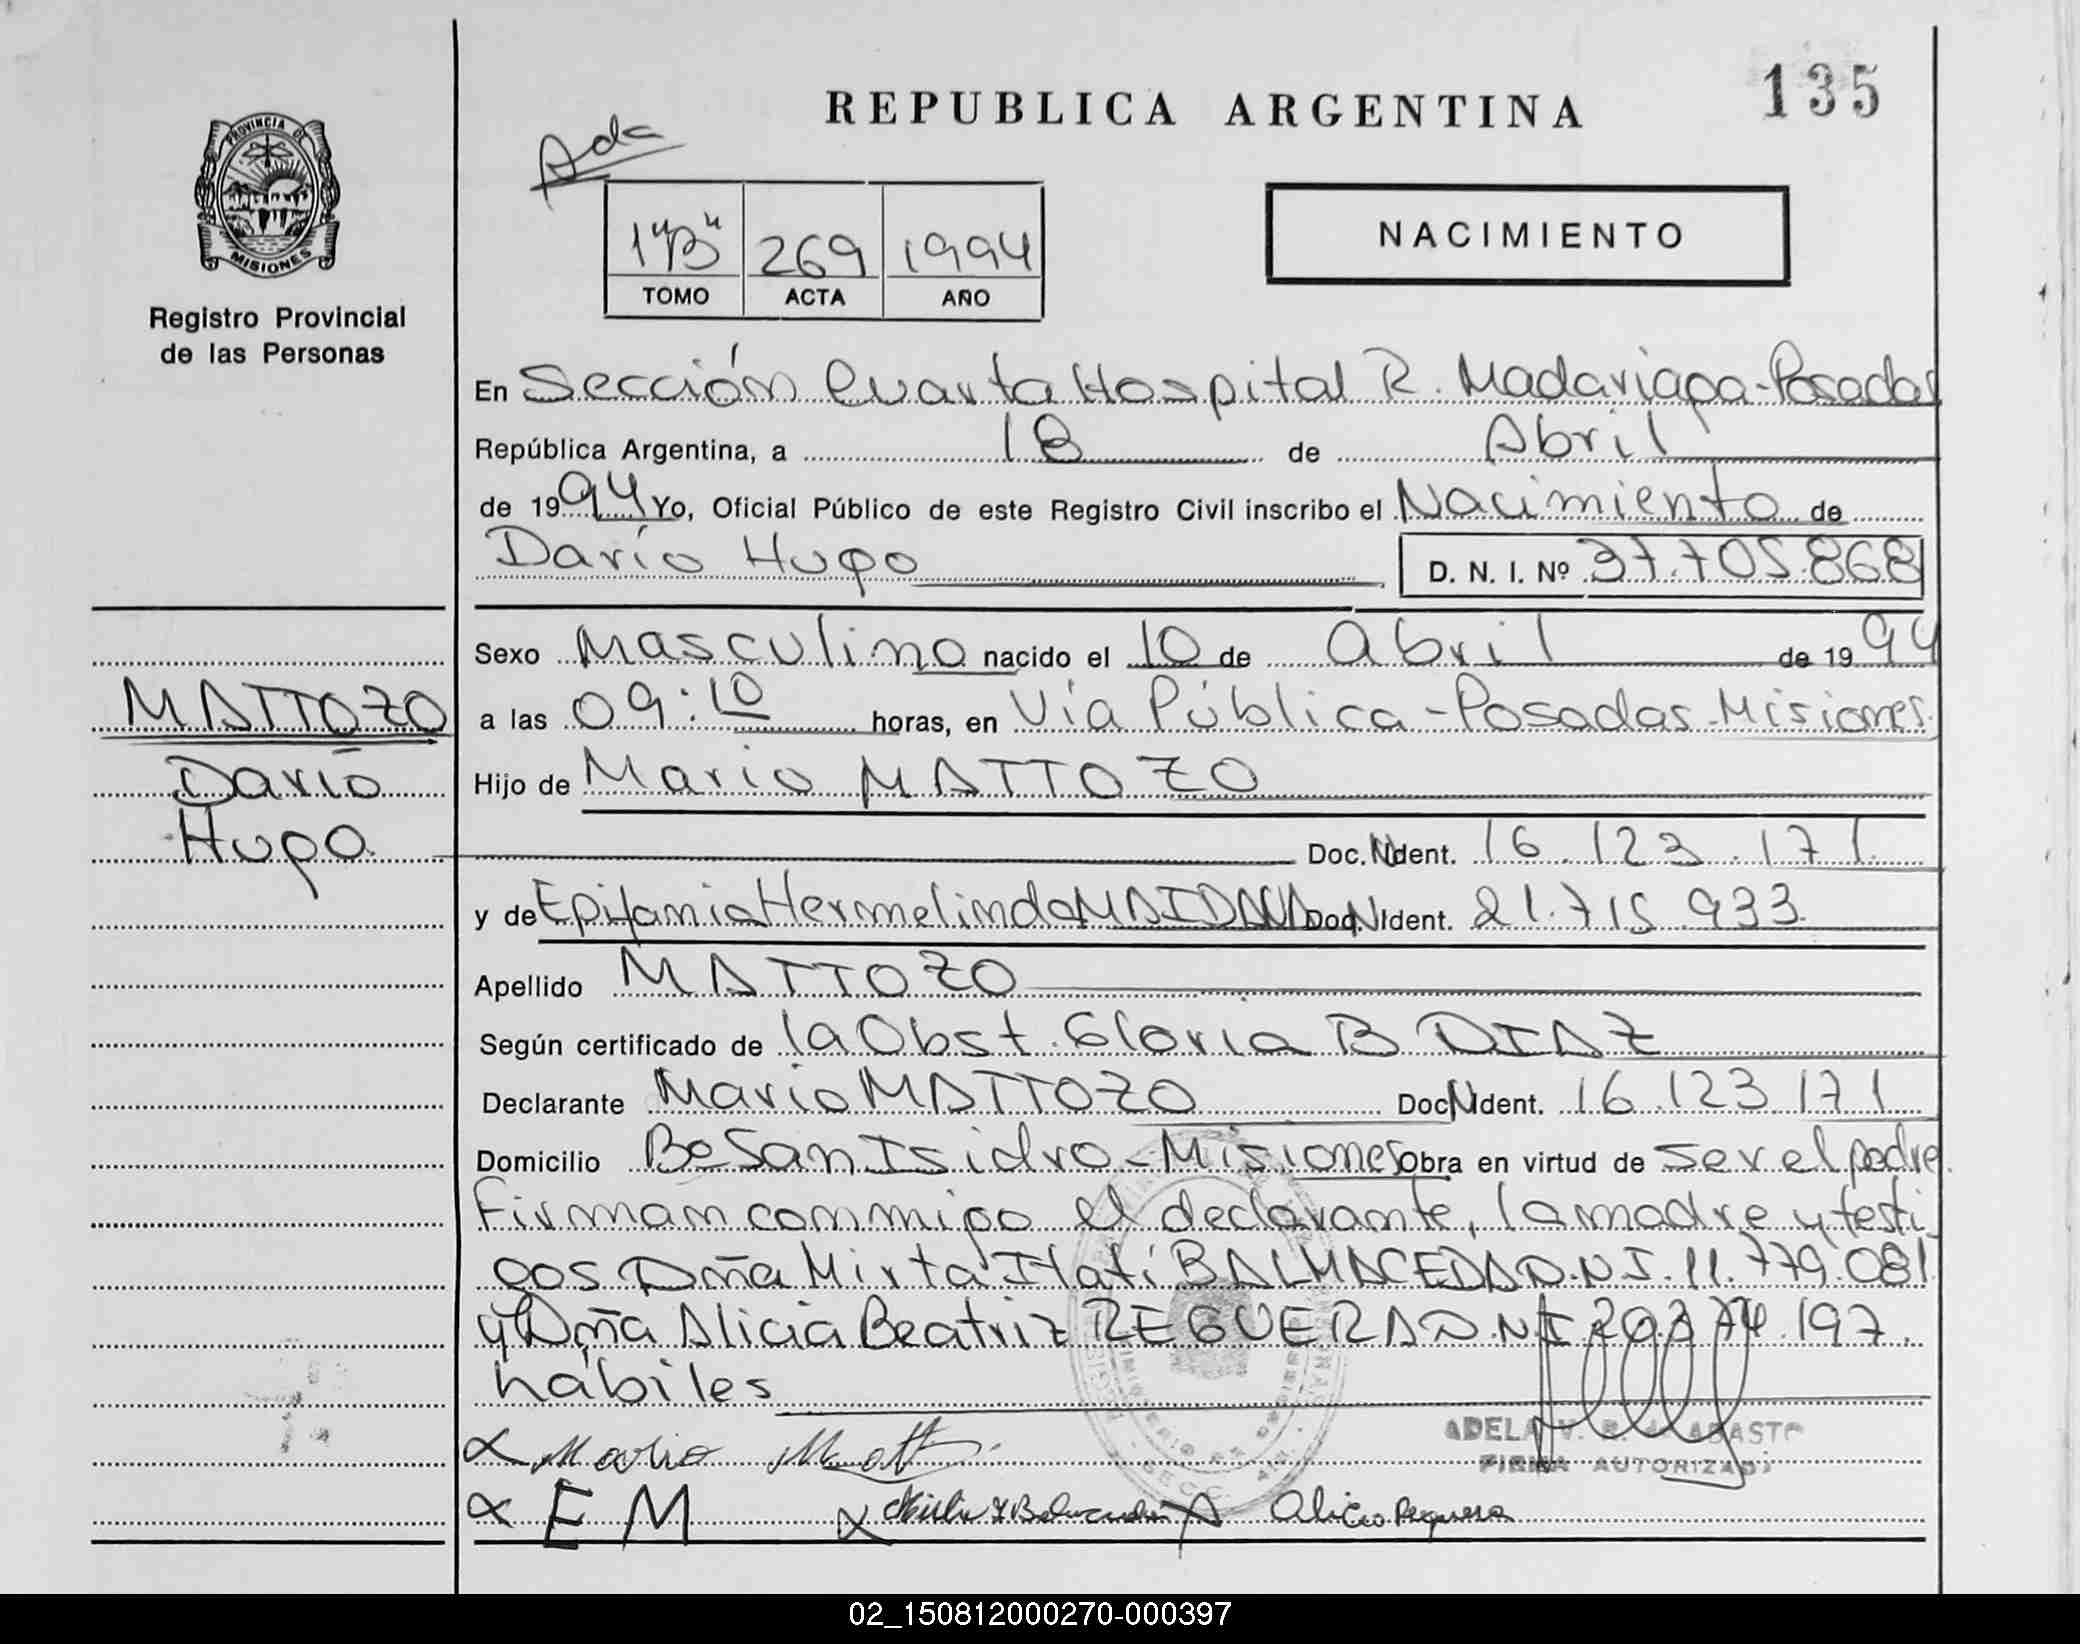 135
REPUBLICA ARGENTINA
Ada
PROVINCIA DE
MISIONES
Registro Provincial
de las Personas
1"B" 269 1994
TOMO ACTA AÑO
NACIMIENTO
En Sección Cuarta Hospital R. Madariaga - Posadas
República Argentina, a 18 de Abril
de 1994 Yo, Oficial Público de este Registro Civil inscribo el Nacimiento de
Darío Hugo D. N. I. Nº 37.705.868
MATTOZO
Darío
Hugo
Sexo Masculino nacido el 10 de abril de 1994
a las 09:10 horas, en Vía Pública - Posadas - Misiones.
Hijo de Mario MATTOZO
Doc. N Ident. 16.123.171.
y de Epifania Hermelinda MAIDANA Doc. N Ident. 21.715.933.
Apellido MATTOZO
Según certificado de la Obst. Gloria B DIAZ
Declarante Mario MATTOZO Doc N Ident. 16.123.171
Domicilio Bo San Isidro - Misiones Obra en virtud de ser el padre.
Firman conmigo el declarante, la madre y testi
gos Dña Mirta Itatí BALMACEDA D.N.I. 11.779.081
y Dña Alicia Beatriz REGUERA D.N.I 20.374.197.
hábiles
Mario Matt
ADELA V.
FIRMA AUTORIZADA
E M
Alicia Reguera
02_150812000270-000397